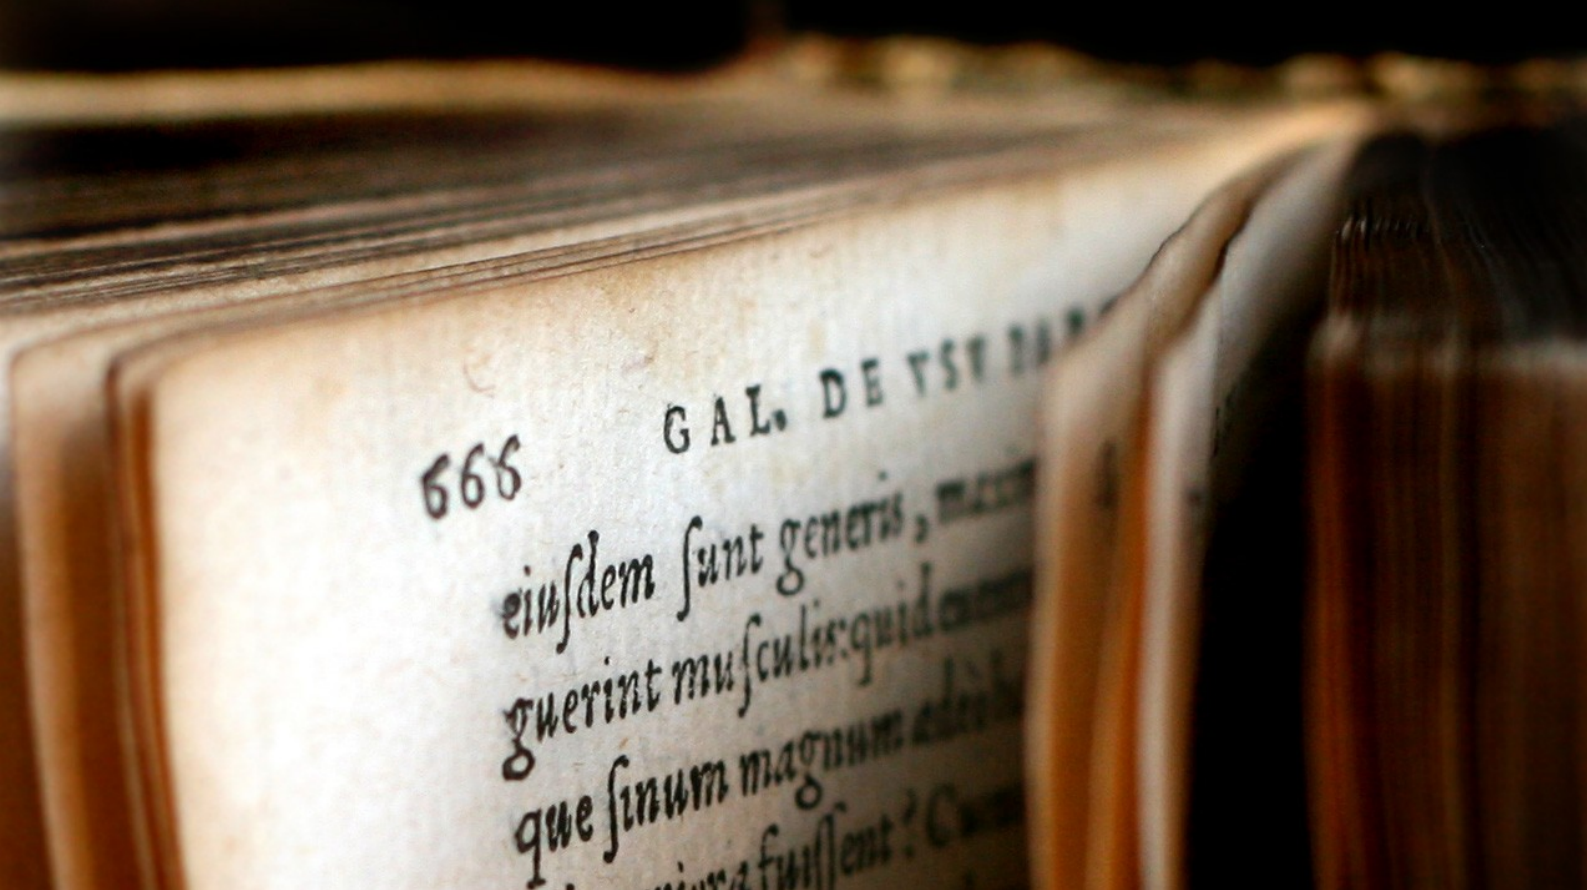 666 GAL. DE VSV PAR
eiuſdem ſunt generis, maxim
guerint muſculis:quidem
que ſinum magnum adeò
fuiſſent? Cum